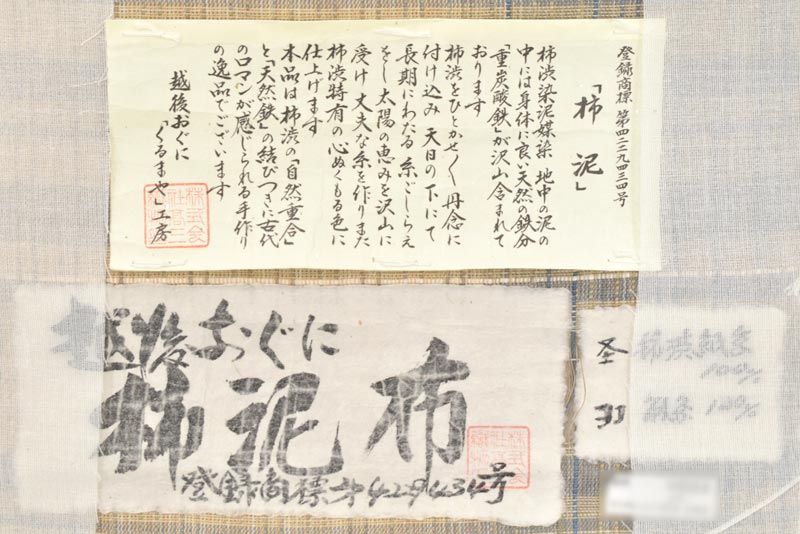 登録商標 第四二九四三四号
「柿 泥」
柿渋染泥媒染 地中の泥の
中には身体に良い天然の鉄分
「重炭酸鉄」が沢山含まれて
おります
柿渋をひとかせ〱丹念に
付け込み 天日の下にて
長期にわたる 糸ごしらえ
をし 太陽の恵みを沢山に
受け 丈夫な糸を作りまた
柿渋特有の心ぬくもる色に
仕上げます
本品は柿渋の「自然重合」
と「天然鉄」の結びつきに古代
のロマンが感じられる手作り
の逸品でございます
越後おぐに
「くるまや」工房
越後おぐに
柿泥布
登録商標 才429434号
圣
刄
100%
100%